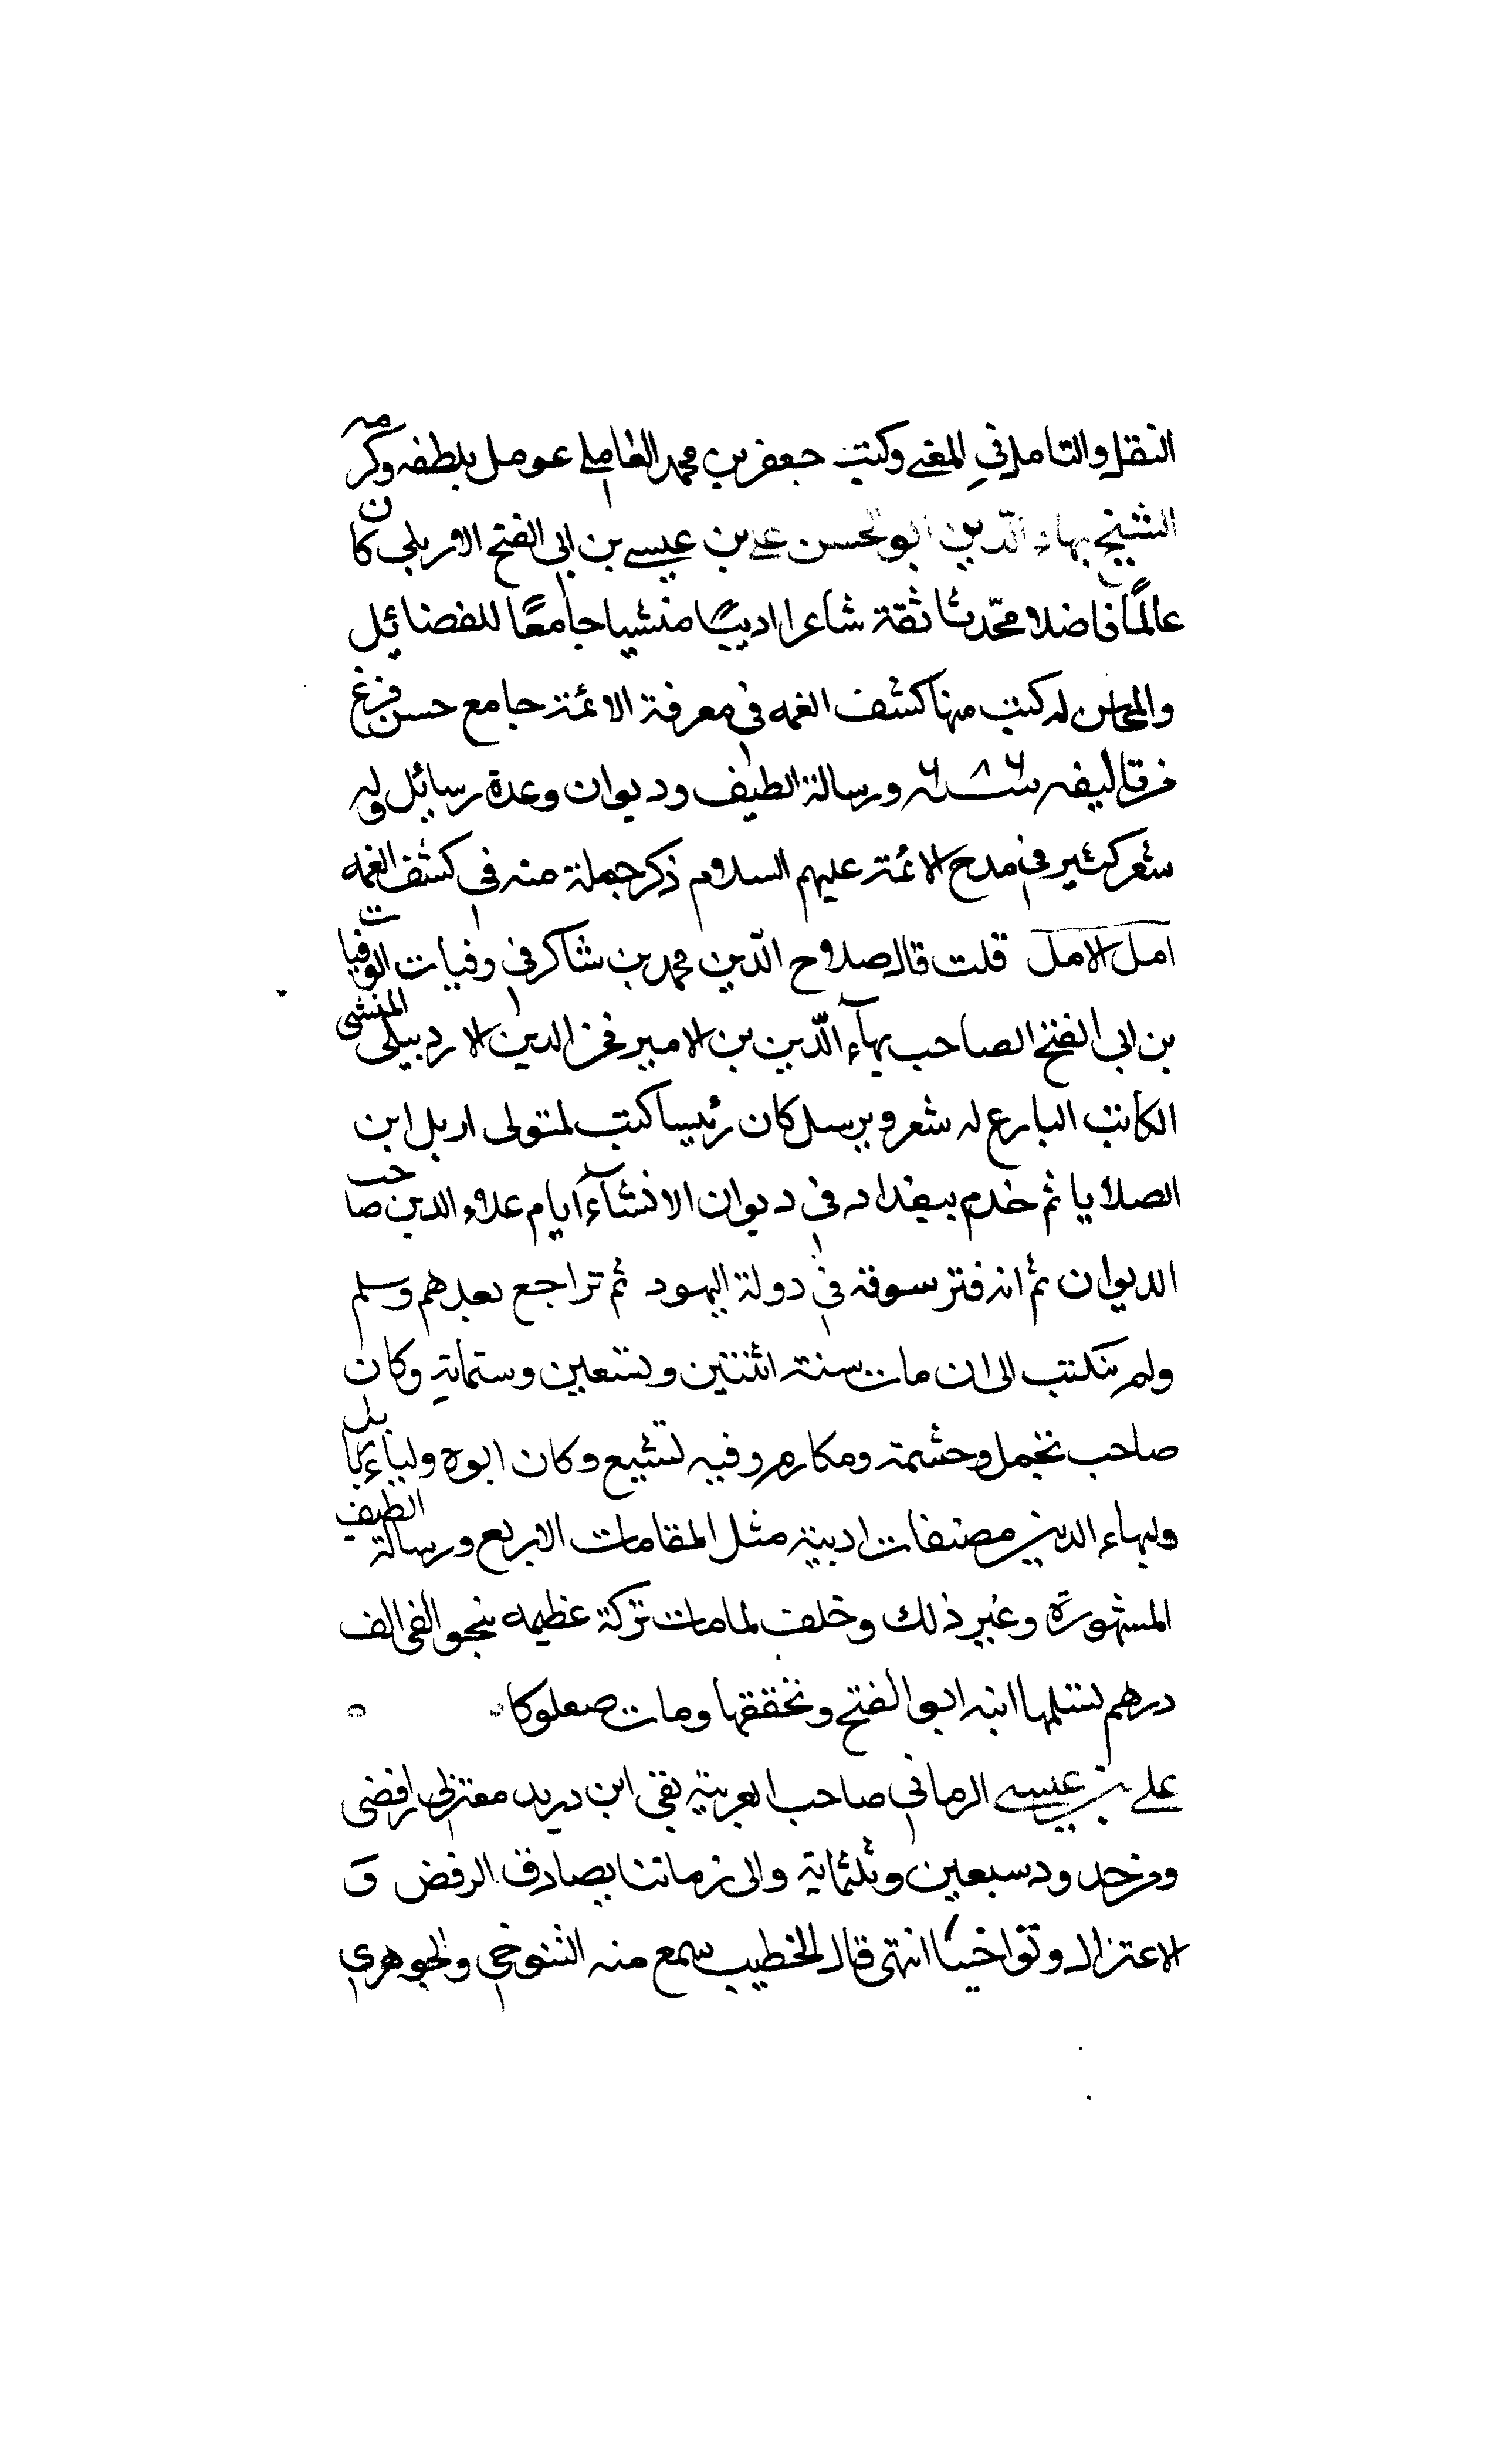 النقل والتامل في المغني وكتب جعفر بن محمد العاملي عومل بلطفه وكرمه
الشيخ بهاء الدين ابو الحسن علي بن عيسى بن ابي الفتح الاربلي كان
عالمًا فاضلا محّدثا ثقة شاعرا اديبًا منشيا جامعًا للفضائل
والمحاسن له كتب منها كشف الغمه في معرفة الائمة جامع حسن فرغ
من تاليفه سنة ٦٨٦ ورسالة الطيف وديوان وعدة رسايل وله
شعر كثير في مدح الائمة عليهم السلام ذكر جملة منه في كشف الغمه
امل الامل قلت قال صلاح الدّين محمد بن شاكر في وفيات الوفيات
بن ابي الفتح الصاحب بهآء الدّين بن الامير فخر الدين الاردبيلي المنشى
الكاتب البارع له شعر وبرسل كان رئيسا كتب لمتولى اربل ابن
الصلايا ثم خدم ببغداد في ديوان الانشآء ايام علاء الدين صاحب
الديوان ثم انه فتر سوقه في دولة اليهود ثم تراجع بعدهم وسلم
ولم ينكتب الى ان مات سنة اثنتين وتسعين وستماية وكان
صاحب تجمل وحشمة ومكارم وفيه تشيع وكان ابوه ولياء باربل
ولبهاء الدين مصنفات ادبية مثل المقامات الاربع ورسالة الطيف
المشهورة وغير ذلك وخلف لما مات تركة عظيمه بنحو الفي الف
درهم تسلمها ابنه ابو الفتح ومحققها ومات صعلوكا
علي بن عيسى الرماني صاحب العربية لقى ابن دريد معتزلي رافضى
ومن حدود سبعين وثلثماية والى زماننا يصادق الرفض و
الاعتزال وتواخيا انتهى قال الخطيب سمع منه التنوخي والجوهري